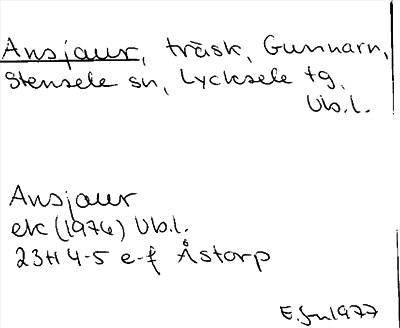 Ansjaur, träsk, Gunnarn,
Stensele sn, Lycksele tg,
Vb.l.
Ansjaur
ek (1976) Vb.l.
23H 4-5 e-f Åstorp
E.Sn 1977